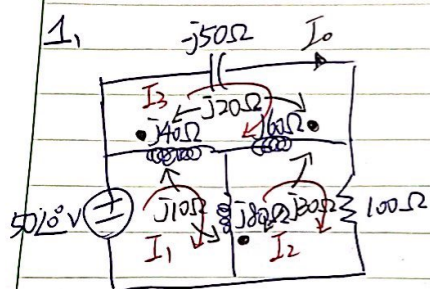 1,
-j50Ω
I₀
I₃
j20Ω
j40Ω
j60Ω
50∠0° V
j10Ω
j80Ω
j30Ω
100Ω
I₁
I₂